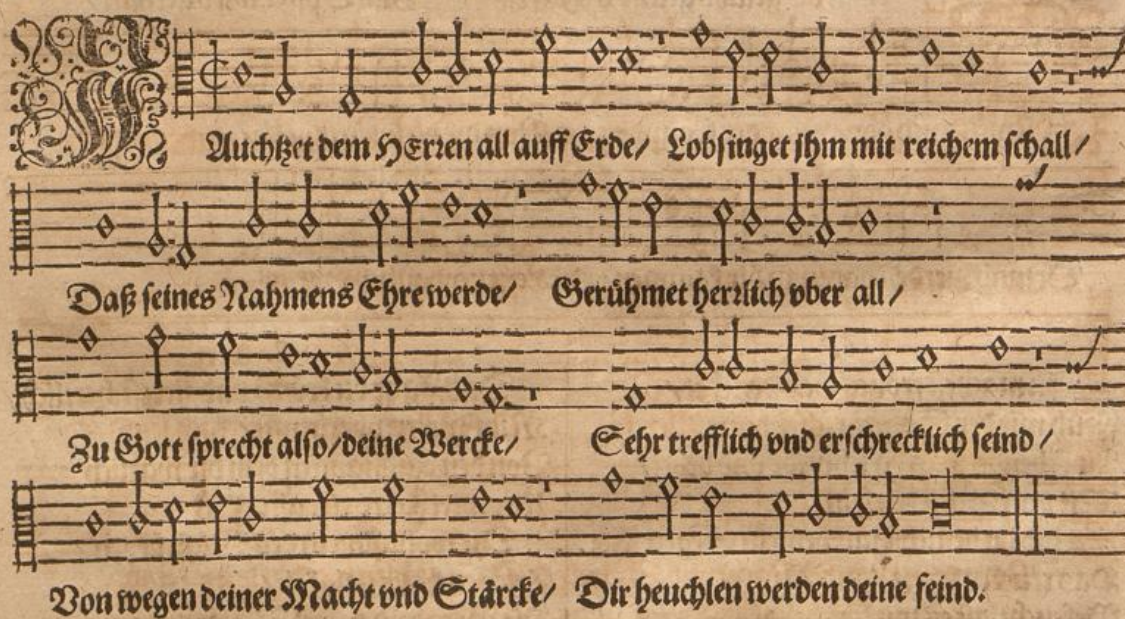 JAuchtzet dem HErren all auff Erde/ Lobsinget jhm mit reichem schall/
Daß seines Nahmens Ehre werde/ Gerühmet herrlich vber all/
Zu Gott sprecht also/ deine Wercke/ Sehr trefflich vnd erschrecklich seind/
Von wegen deiner Macht vnd Stärcke/ Dir heuchlen werden deine feind.